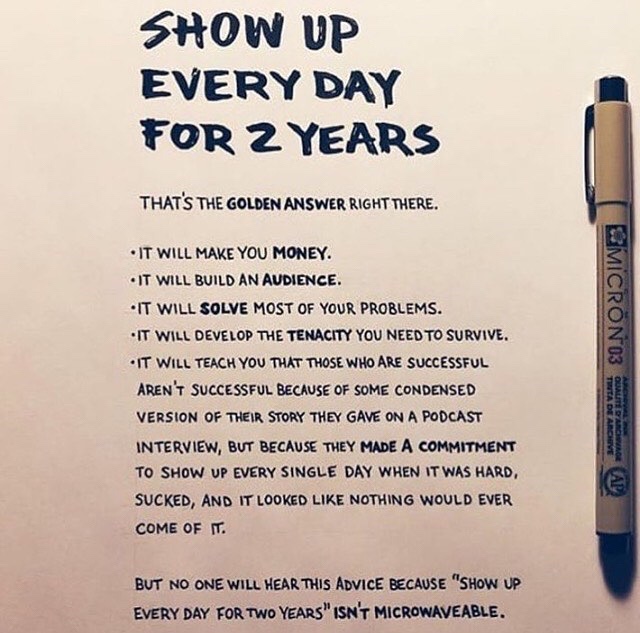 SHOW UP
EVERY DAY
FOR 2 YEARS
THAT'S THE GOLDEN ANSWER RIGHT THERE.
• IT WILL MAKE YOU MONEY.
• IT WILL BUILD AN AUDIENCE.
• IT WILL SOLVE MOST OF YOUR PROBLEMS.
• IT WILL DEVELOP THE TENACITY YOU NEED TO SURVIVE.
• IT WILL TEACH YOU THAT THOSE WHO ARE SUCCESSFUL
AREN'T SUCCESSFUL BECAUSE OF SOME CONDENSED
VERSION OF THEIR STORY THEY GAVE ON A PODCAST
INTERVIEW, BUT BECAUSE THEY MADE A COMMITMENT
TO SHOW UP EVERY SINGLE DAY WHEN IT WAS HARD,
SUCKED, AND IT LOOKED LIKE NOTHING WOULD EVER
COME OF IT.
BUT NO ONE WILL HEAR THIS ADVICE BECAUSE "SHOW UP
EVERY DAY FOR TWO YEARS" ISN'T MICROWAVEABLE.
MICRON 03
ARCHIVAL INK
QUALITÉ D'ARCHIVAGE
TINTA DE ARCHIVE
AP